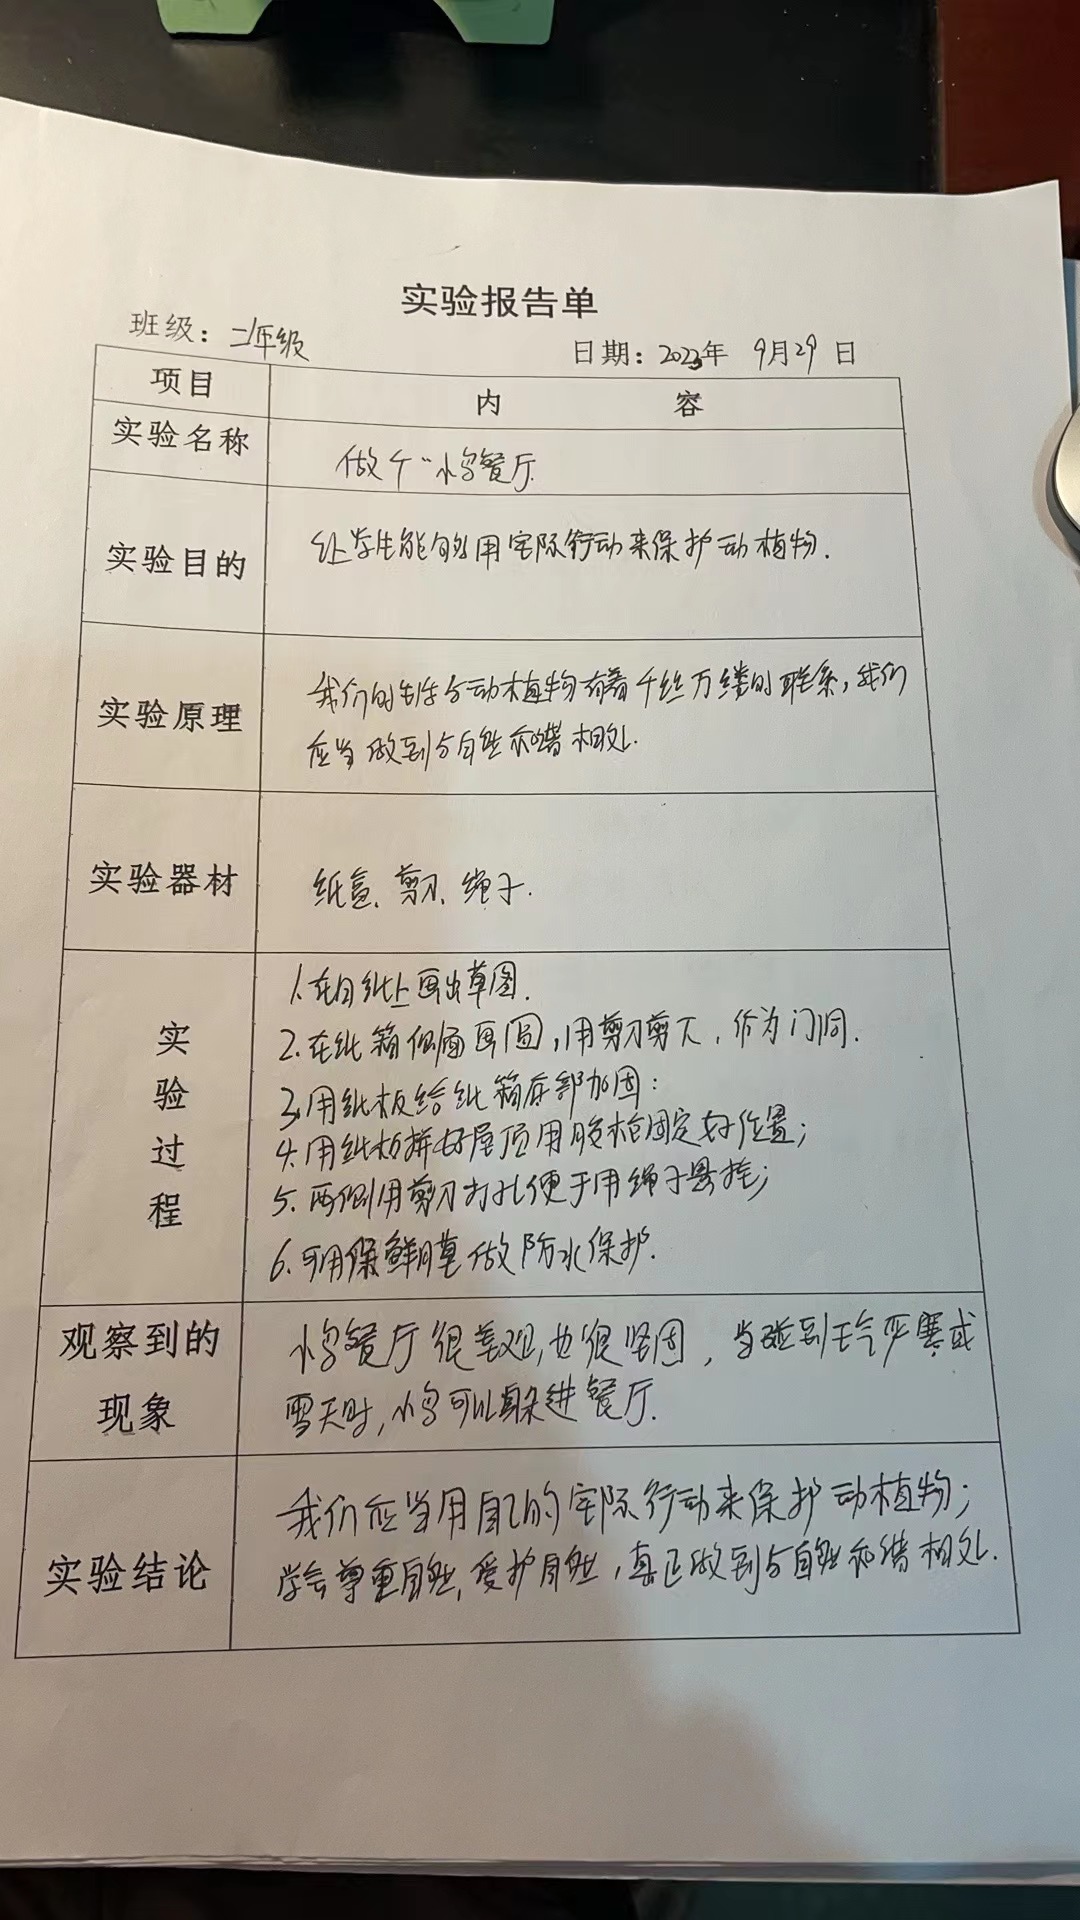 实验报告单
班级：二年级
日期：2023年 9月29日
项目
内 容
实验名称
做个“小鸟餐厅.
实验目的
让学生能够用实际行动来保护动植物.
实验原理
我们的生活与动植物有着千丝万缕的联系，我们
应当做到与自然和谐相处.
实验器材
纸盒、剪刀、绳子.
实
验
过
程
1.在白纸上画出草图.
2.在纸箱侧面画圆，用剪刀剪下，作为门洞.
3.用纸板给纸箱底部加固：
4.用纸板拼好屋顶用胶枪固定好位置；
5.两侧用剪刀打孔便于用绳子悬挂；
6.可用保鲜膜做防水保护.
观察到的
现象
小鸟餐厅很美观，也很坚固，当碰到天气严寒或
雪天时，小鸟可以躲进餐厅.
实验结论
我们应当用自己的实际行动来保护动植物；
学会尊重自然、爱护自然，真正做到与自然和谐相处.